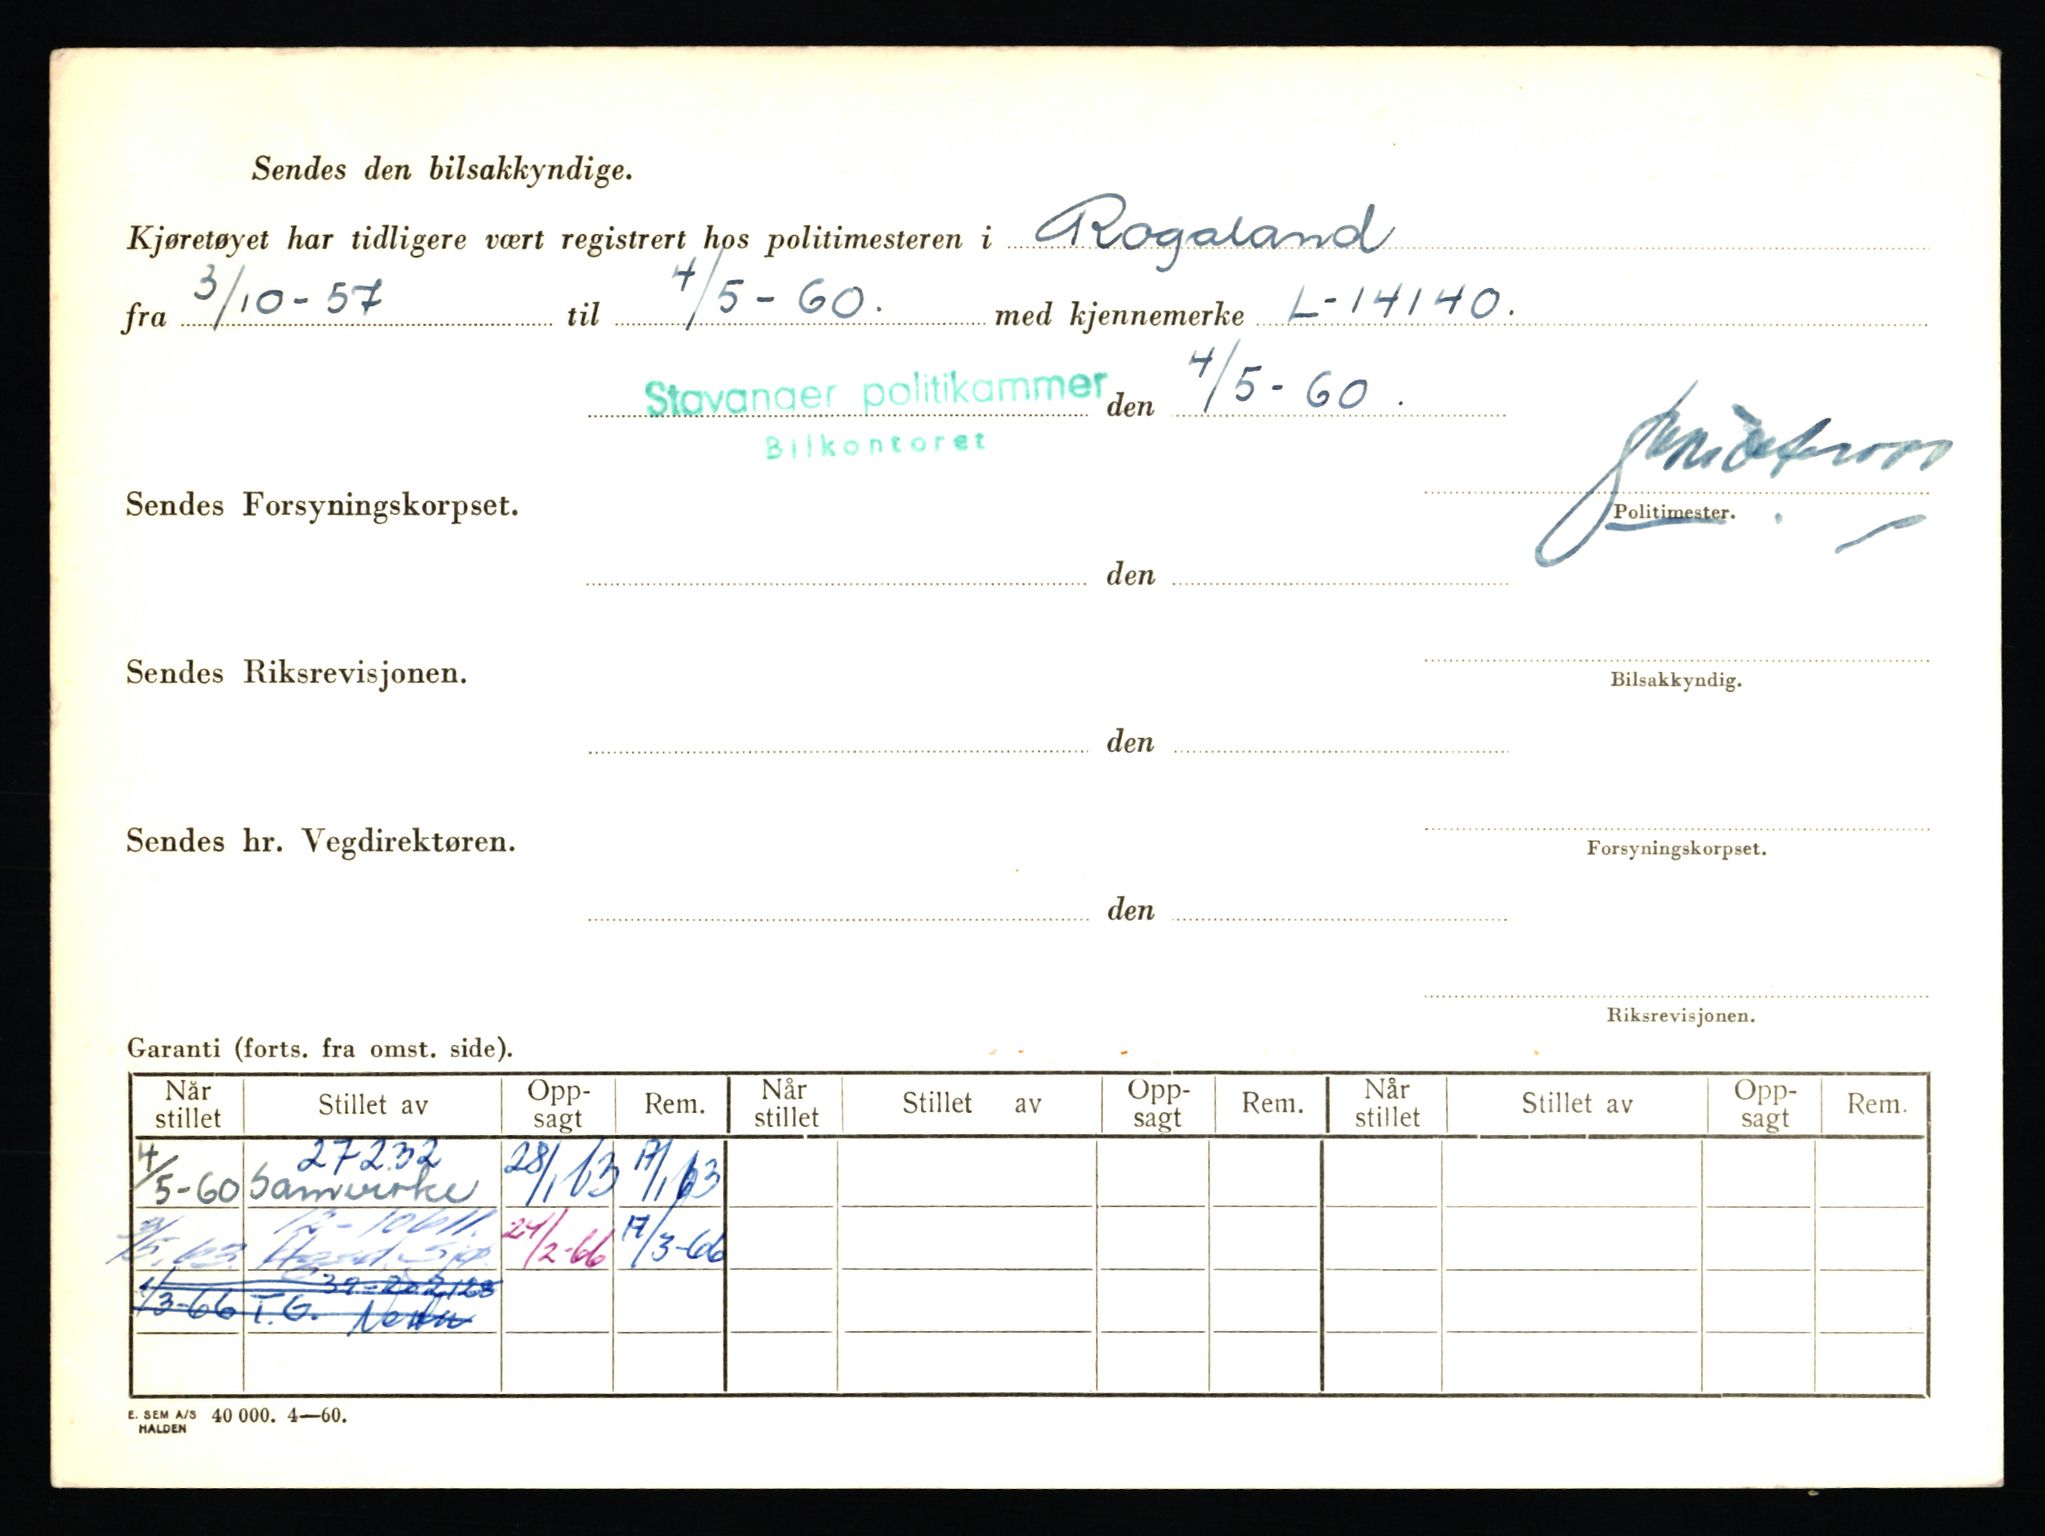 Sendes den bilsakkyndige.
Kjøretøyet har tidligere vært registrert hos politimesteren i Rogaland
fra 3/10-57 til 4/5-60. med kjennemerke L-14140.
Stavanger politikammer den 4/5-60.
Bilkontoret
Sendes Forsyningskorpset.
Politimester.
den
Sendes Riksrevisjonen.
Bilsakkyndig.
den
Sendes hr. Vegdirektøren.
Forsyningskorpset.
den
Riksrevisjonen.
Garanti (forts. fra omst. side).
Når stillet Stillet av Opp- sagt Rem. Når stillet Stillet av Opp- sagt Rem. Når stillet Stillet av Opp- sagt Rem.
4/5-60 27232 Samvirke 28/1 63 17/1 63
24/2-66 17/3-66
1/3-66 T.G.
E. SEM A/S HALDEN 40 000. 4—60.